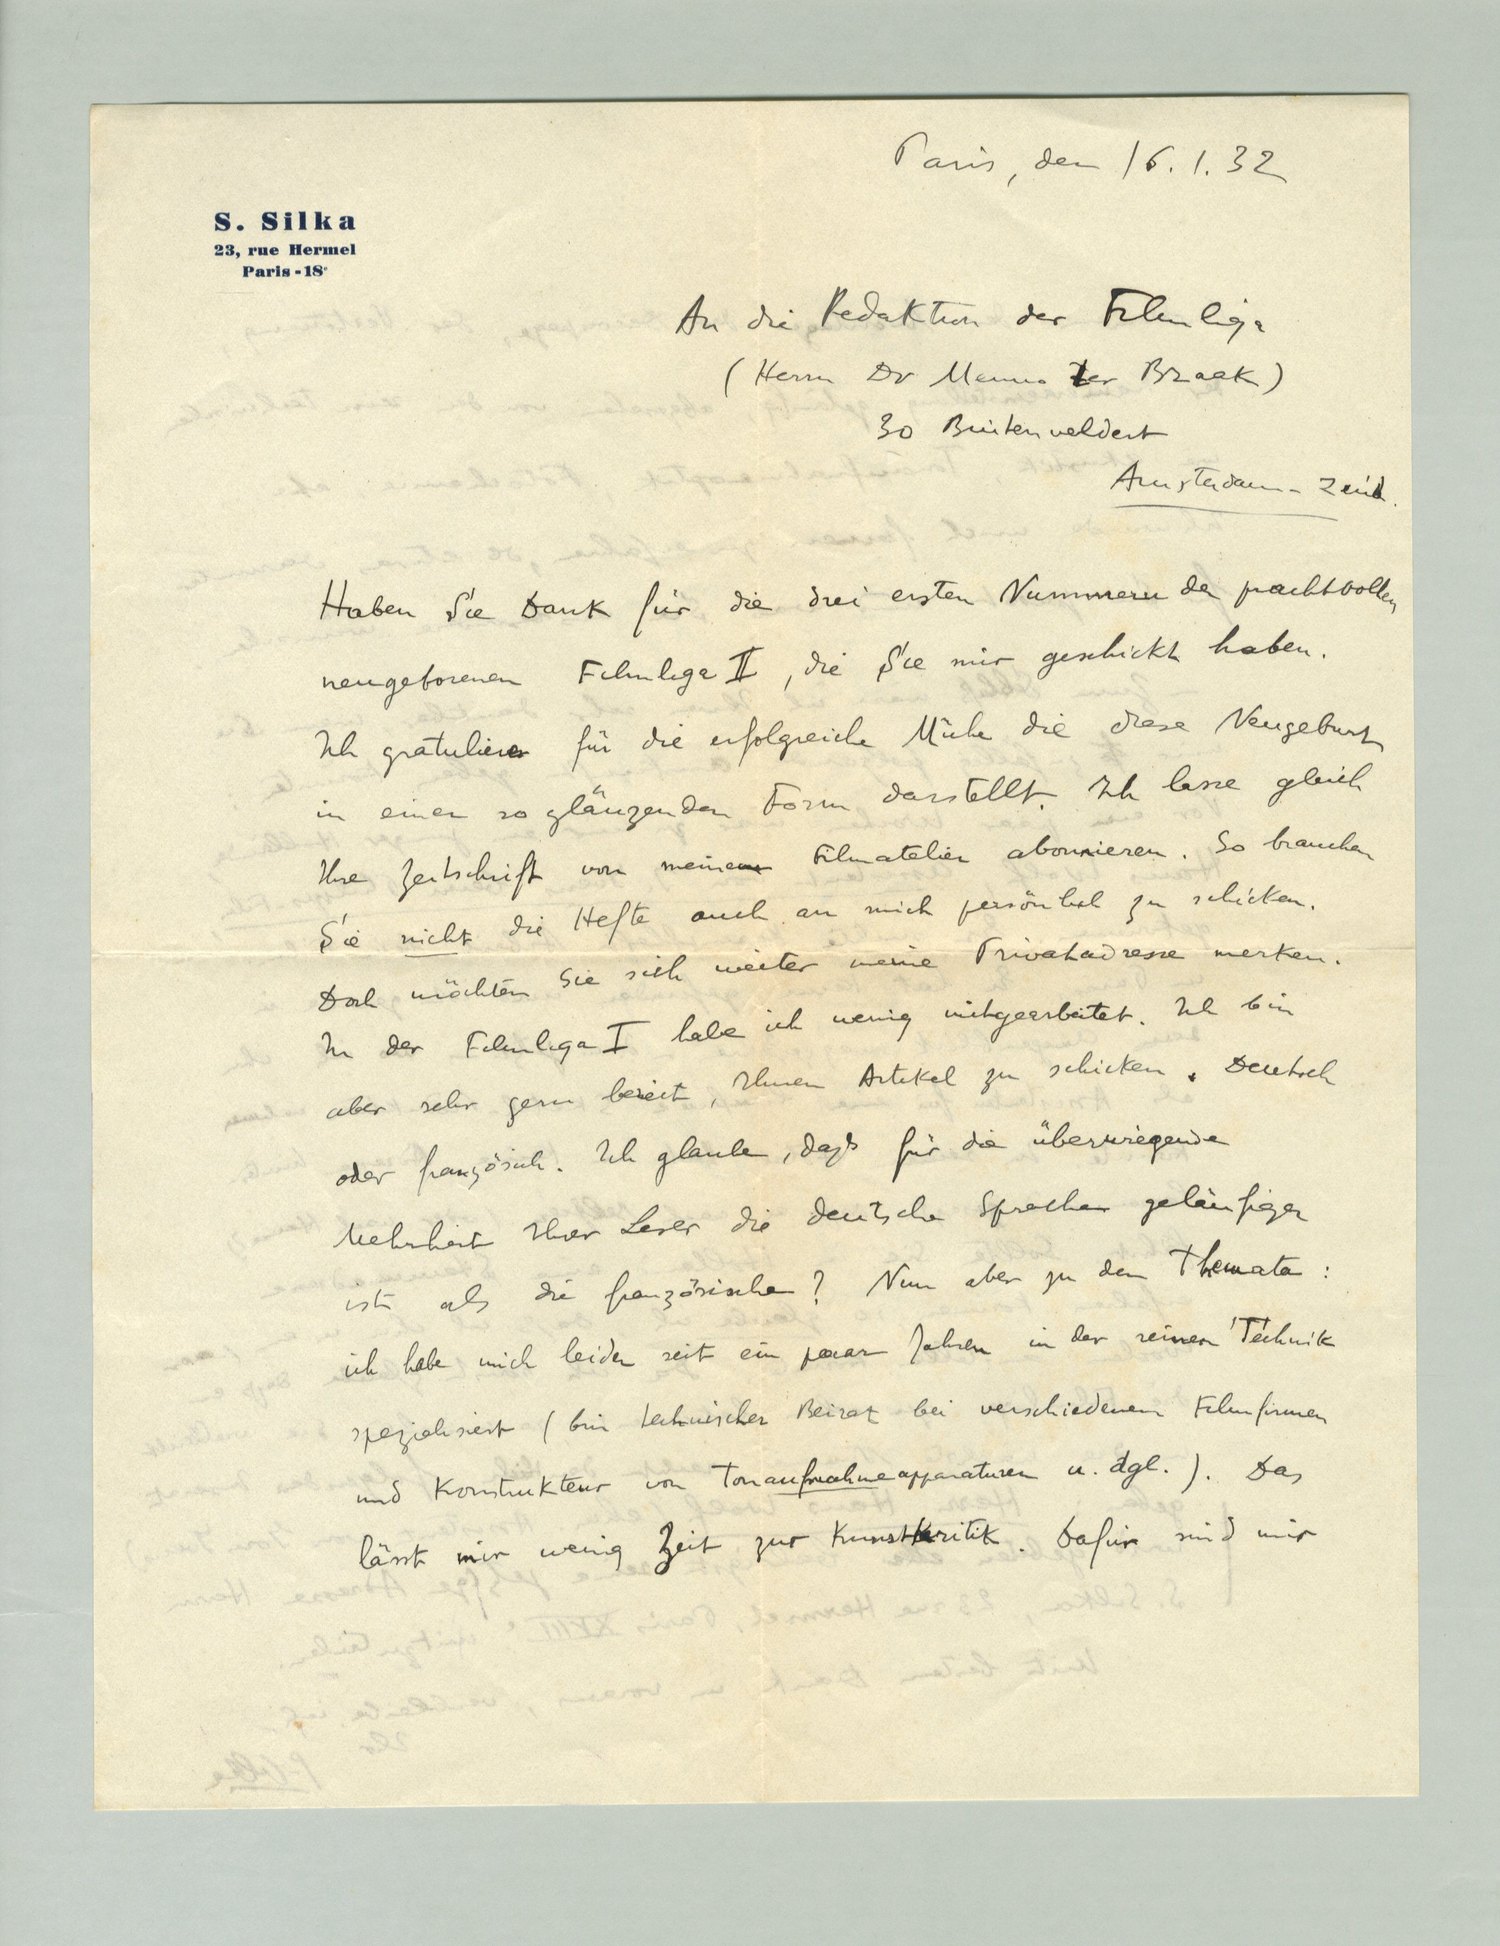 Paris, den 16.1.32
S. Silka
23, rue Hermel
Paris-18e
An die Redaktion der Filmliga
(Herrn Dr Menno ter Braak)
30 Buitenveldert
Amsterdam-Zuid.
Haben Sie Dank für die drei ersten Nummern der prachtvollen
neugeborenen Filmliga II, die Sie mir geschickt haben.
Ich gratuliere für die erfolgreiche Mühe die diese Neugeburt
in einer so glänzenden Form darstellt. Ich lasse gleich
Ihre Zeitschrift von meinem Filmatelier abonnieren. So brauchen
Sie nicht die Hefte auch an mich persönlich zu schicken.
Doch möchten Sie sich weiter meine Privatadresse merken.
In der Filmliga I habe ich wenig mitgearbeitet. Ich bin
aber sehr gern bereit, Ihnen Artikel zu schicken. Deutsch
oder französisch. Ich glaube, dass für die überwiegende
Mehrheit Ihrer Leser die deutsche Sprache geläufiger
ist als die französische? Nun aber zu den Themata:
ich habe mich leider seit ein paar Jahren in der reinen Technik
spezialisiert (bin technischer Beirat bei verschiedenen Filmfirmen
und Konstrukteur von Tonaufnahmeapparaturen u. dgl.). Das
lässt mir wenig Zeit zur Kunstkritik. Dafür sind mir